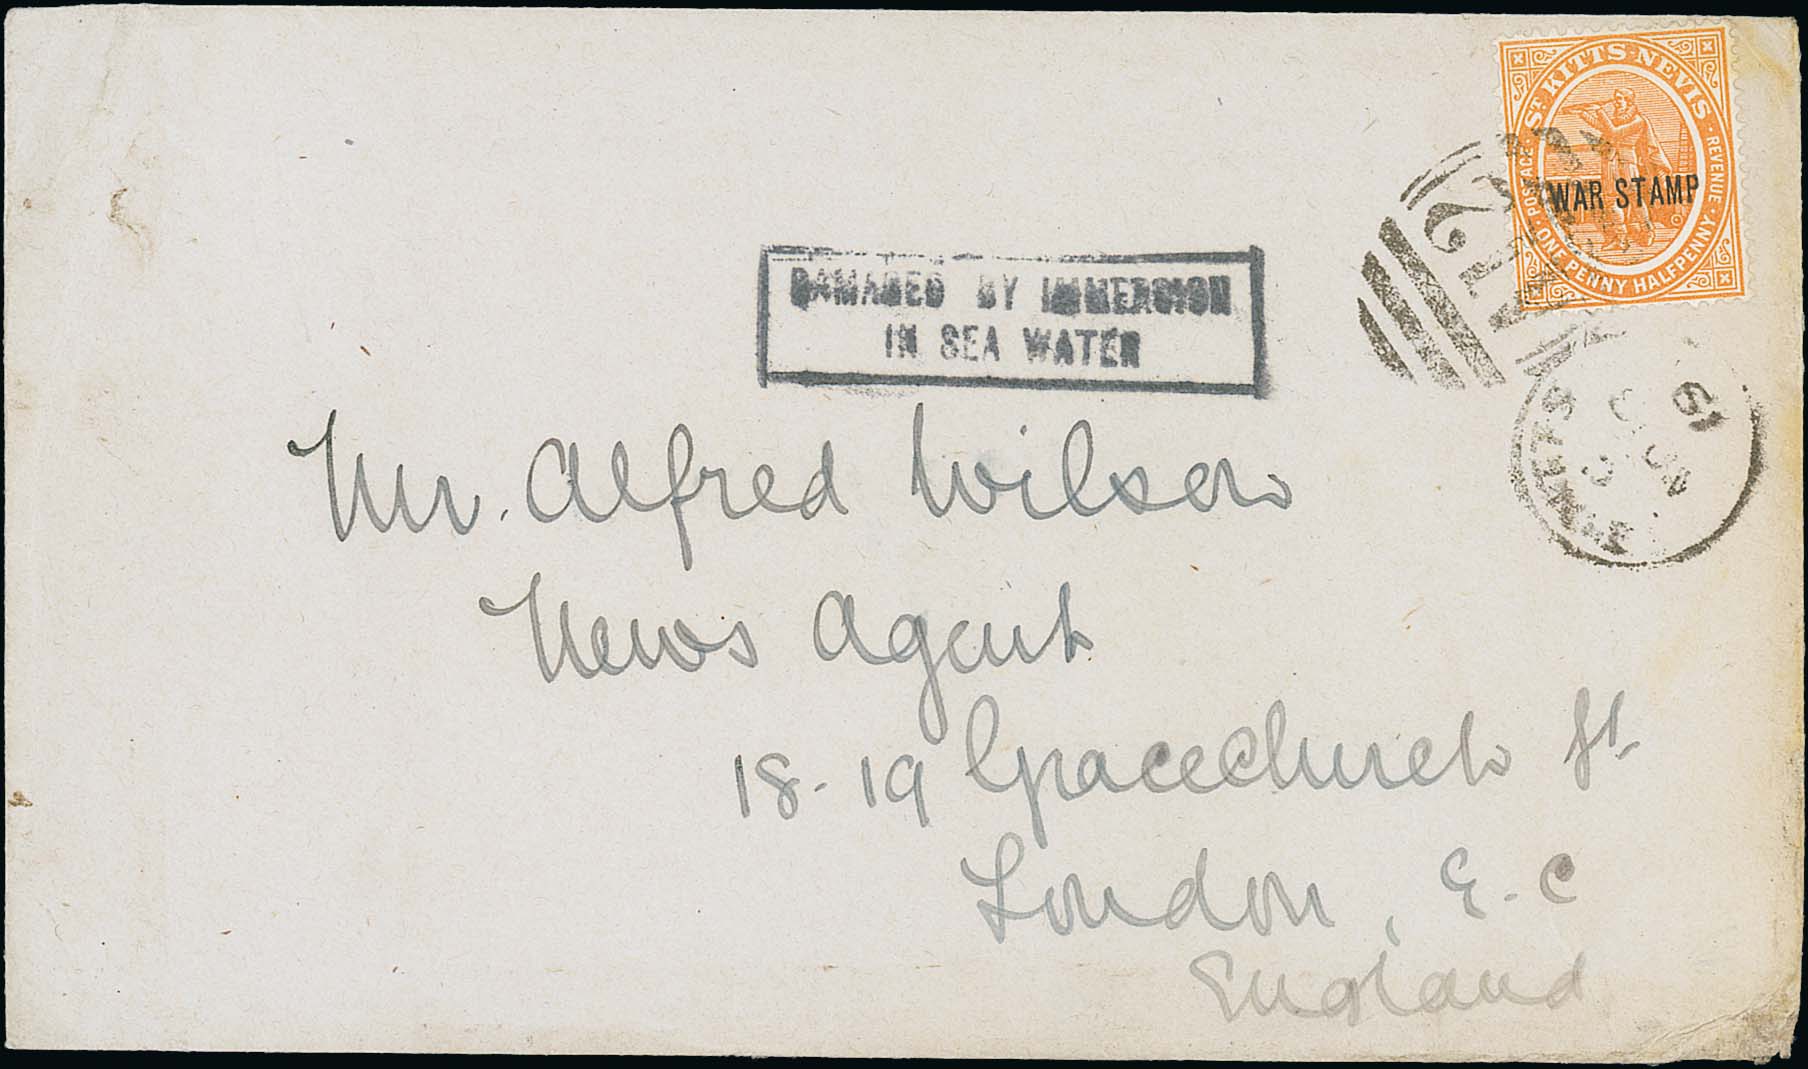 ST KITTS-NEVIS
POSTAGE · REVENUE
WAR STAMP
ONE PENNY HALFPENNY
A12
ST. KITTS
JU 19
DAMAGED BY IMMERSION
IN SEA WATER
Mr. Alfred Wilson
News Agent
18-19 Gracechurch St.
London, E.C
England